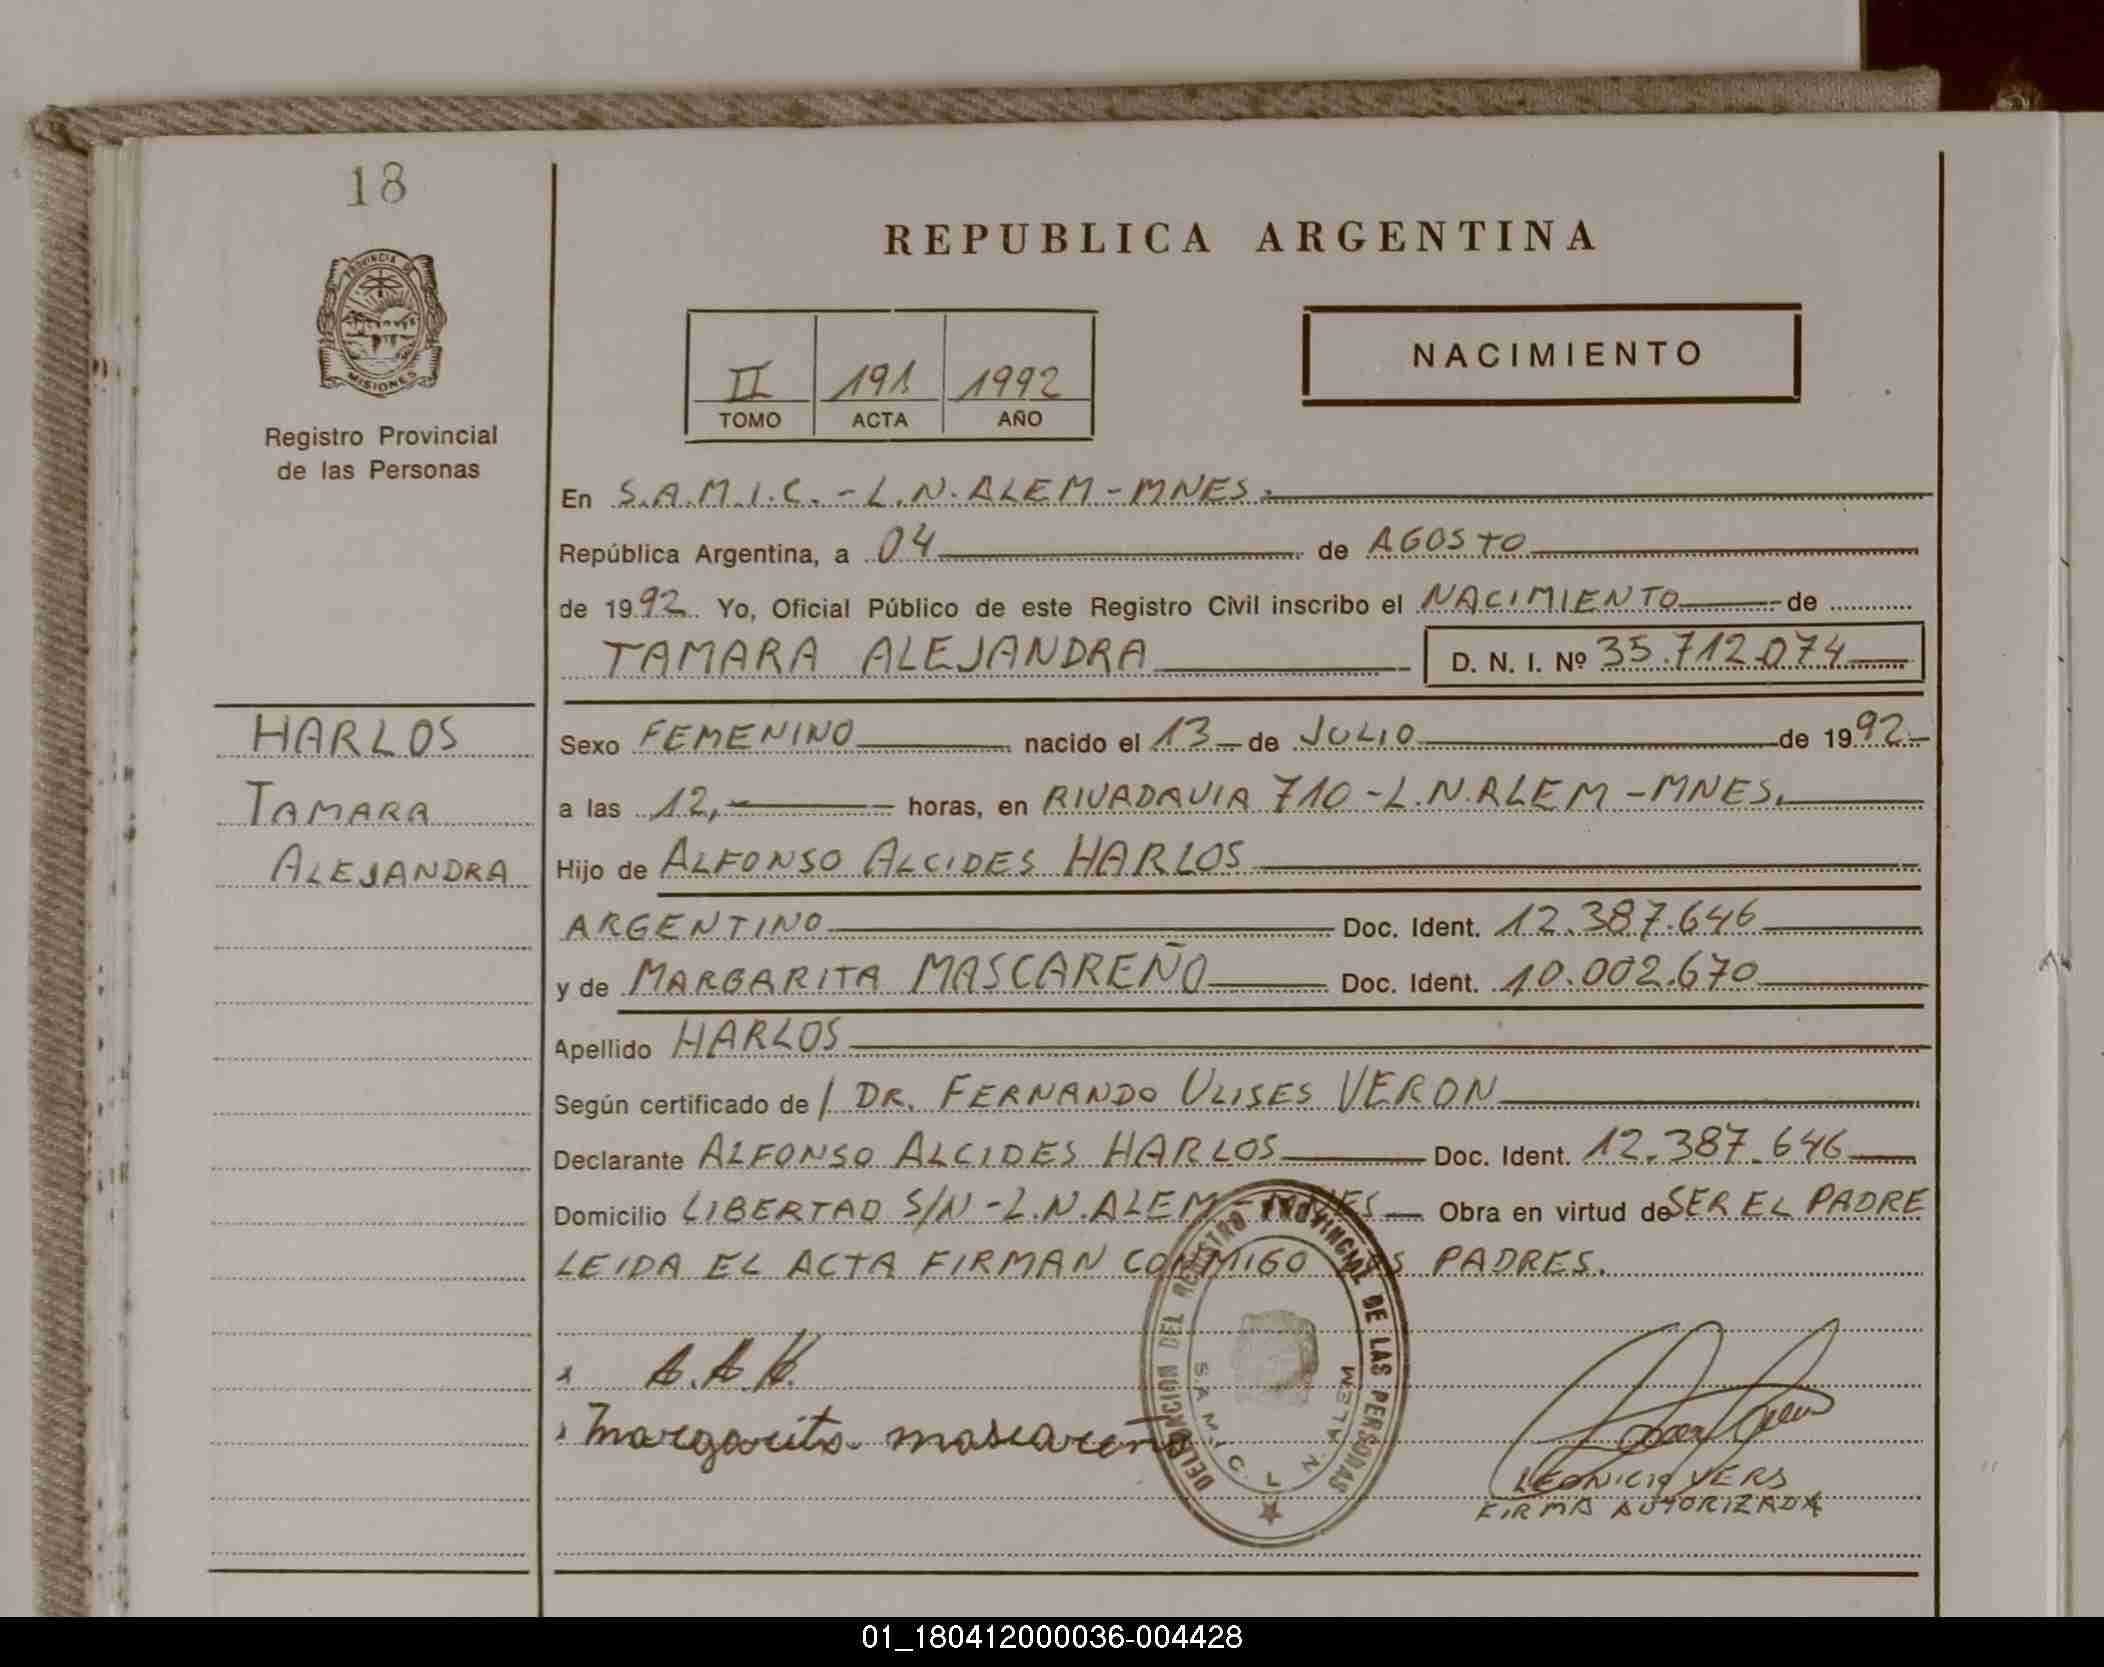 18
PROVINCIA DE
MISIONES
Registro Provincial
de las Personas
HARLOS
TAMARA
ALEJANDRA
REPUBLICA ARGENTINA
II 191 1992
TOMO ACTA AÑO
NACIMIENTO
En S.A.M.I.C. - L.N. ALEM - MNES.
República Argentina, a 04 de AGOSTO
de 1992. Yo, Oficial Público de este Registro Civil inscribo el NACIMIENTO de
TAMARA ALEJANDRA D. N. I. Nº 35.712.074
Sexo FEMENINO nacido el 13 de JULIO de 1992
a las 12, horas, en RIVADAVIA 710 - L.N. ALEM - MNES.
Hijo de ALFONSO ALCIDES HARLOS
ARGENTINO Doc. Ident. 12.387.646
y de MARGARITA MASCAREÑO Doc. Ident. 10.002.670
Apellido HARLOS
Según certificado de / DR. FERNANDO ULISES VERON
Declarante ALFONSO ALCIDES HARLOS Doc. Ident. 12.387.646
Domicilio LIBERTAD S/N - L.N. ALEM - MNES Obra en virtud de SER EL PADRE
LEIDA EL ACTA FIRMAN CONMIGO LOS PADRES.
x A.A.H.
Margarita mascareño
DELEGACION DEL REGISTRO PROVINCIAL DE LAS PERSONAS
S.A.M.I.C. L. N. ALEM
LEONICIO VERS
FIRMA AUTORIZADA
01_180412000036-004428